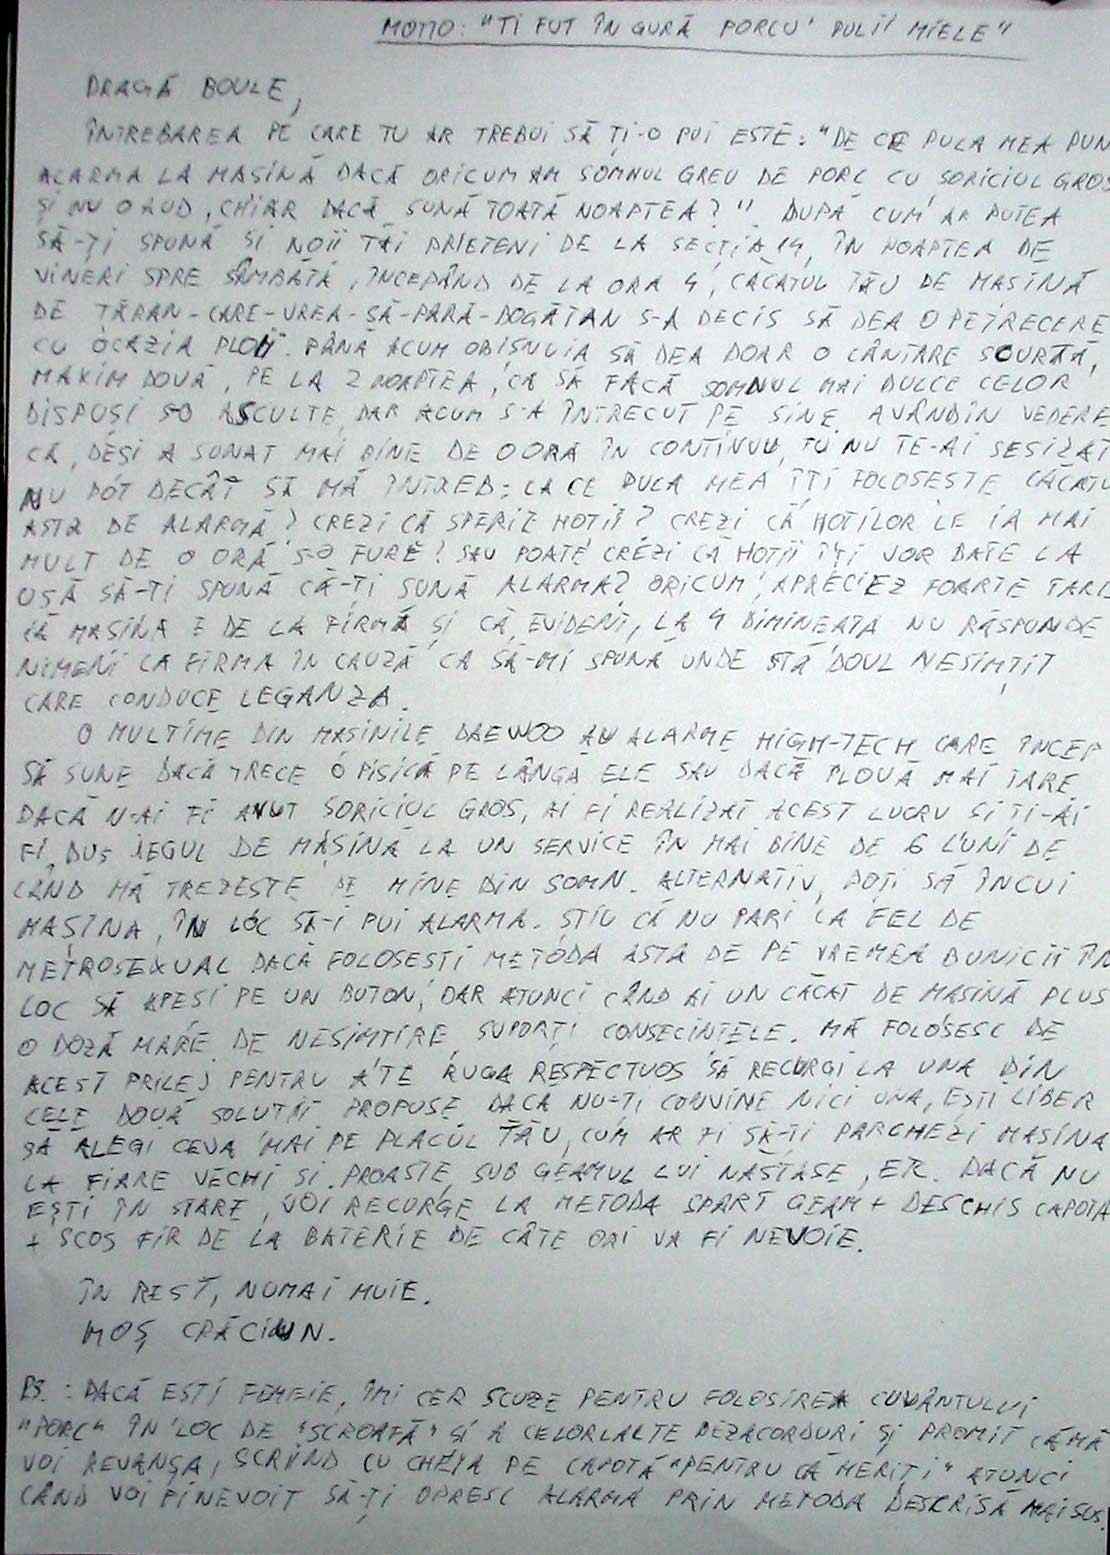 MOTTO: "TI FUT ÎN GURĂ PORCU' PULII MIELE"
DRAGĂ BOULE,
ÎNTREBAREA PE CARE TU AR TREBUI SĂ ȚI-O PUI ESTE: "DE CE PULA MEA PUN
ALARMA LA MASINĂ DACĂ ORICUM AM SOMNUL GREU DE PORC CU SORICIUL GROS
ȘI NU O AUD, CHIAR DACĂ SUNĂ TOATĂ NOAPTEA?" DUPĂ CUM AR PUTEA
SĂ-ȚI SPUNĂ SI NOII TĂI PRIETENI DE LA SECȚIA 14, ÎN NOAPTEA DE
VINERI SPRE SÂMBĂTĂ, ÎNCEPÂND DE LA ORA 4, CĂCATUL TĂU DE MASINĂ
DE ȚĂRAN-CARE-VREA-SĂ-PARĂ-BOGĂTAN S-A DECIS SĂ DEA O PETRECERE
CU OCAZIA PLOII. PÂNĂ ACUM OBISNUIA SĂ DEA DOAR O CÂNTARE SCURTĂ,
MAXIM DOUĂ, PE LA 2 NOAPTEA, CA SĂ FACĂ SOMNUL MAI DULCE CELOR
DISPUȘI S-O ASCULTE DAR ACUM S-A ÎNTRECUT PE SINE. AVÂND ÎN VEDERE
CĂ, DEȘI A SUNAT MAI BINE DE O ORĂ ÎN CONTINUU, TU NU TE-AI SESIZAT
NU POT DECÂT SĂ MĂ ÎNTREB: LA CE PULA MEA ÎȚI FOLOSESTE CĂCATU
ASTA DE ALARMĂ? CREZI CĂ SPERIE HOTII? CREZI CĂ HOTILOR LE IA MAI
MULT DE O ORĂ S-O FURE? SAU POATE CREZI CĂ HOTII ÎȚI VOR BATE LA
UȘĂ SĂ-TI SPUNĂ CĂ-TI SUNĂ ALARMA? ORICUM, APRECIEZ FOARTE TARE
CĂ MASINA E DE LA FIRMĂ ȘI CĂ, EVIDENT, LA 4 DIMINEATA NU RĂSPUNDE
NIMENI LA FIRMA ÎN CAUZĂ CA SĂ-MI SPUNĂ UNDE STĂ BOUL NESIMȚIT
CARE CONDUCE LEGANZA.
O MULTIME DIN MASINILE DAEWOO AU ALARME HIGH-TECH CARE ÎNCEP
SĂ SUNE DACĂ TRECE O PISICĂ PE LÂNGĂ ELE SAU DACĂ PLOUĂ MAI TARE.
DACĂ N-AI FI AVUT SORICIUL GROS, AI FI REALIZAT ACEST LUCRU SI TI-AI
FI DUS JEGUL DE MASINĂ LA UN SERVICE ÎN MAI BINE DE 6 LUNI DE
CÂND MĂ TREZESTE PE MINE DIN SOMN. ALTERNATIV, POȚI SĂ ÎNCUI
MAȘINA, ÎN LOC SĂ-I PUI ALARMA. STIU CĂ NU PARI LA FEL DE
METROSEXUAL DACĂ FOLOSESTI METODA ASTA DE PE VREMEA BUNICII ÎN
LOC SĂ APESI PE UN BUTON, DAR ATUNCI CÂND AI UN CĂCAT DE MASINĂ PLUS
O DOZĂ MARE DE NESIMTIRE, SUPORȚI CONSECINTELE. MĂ FOLOSESC DE
ACEST PRILEJ PENTRU A TE RUGA RESPECTUOS SĂ RECURGI LA UNA DIN
CELE DOUĂ SOLUTII PROPUSE. DACĂ NU-TI CONVINE NICI UNA, EȘTI LIBER
SĂ ALEGI CEVA MAI PE PLACUL TĂU, CUM AR FI SĂ-TI PARCHEZI MASINA
LA FIARE VECHI SI PROASTE, SUB GEAMUL LUI NĂSTASE, ETC. DACĂ NU
EȘTI ÎN STARE, VOI RECURGE LA METODA SPART GEAM + DESCHIS CAPOTA
+ SCOS FIR DE LA BATERIE DE CÂTE ORI VA FI NEVOIE.
ÎN REST, NUMAI MUIE.
MOȘ CRĂCIUN.
PS.: DACĂ EȘTI FEMEIE, ÎMI CER SCUZE PENTRU FOLOSIREA CUVÂNTULUI
"PORC" ÎN LOC DE "SCROAFĂ" ȘI A CELORLALTE DEZACORDURI ȘI PROMIT CĂ MĂ
VOI REVANȘA, SCRIIND CU CHEIA PE CAPOTĂ "PENTRU CĂ MERIȚI" ATUNCI
CÂND VOI FI NEVOIT SĂ-ȚI OPRESC ALARMA PRIN METODA DESCRISĂ MAI SUS.